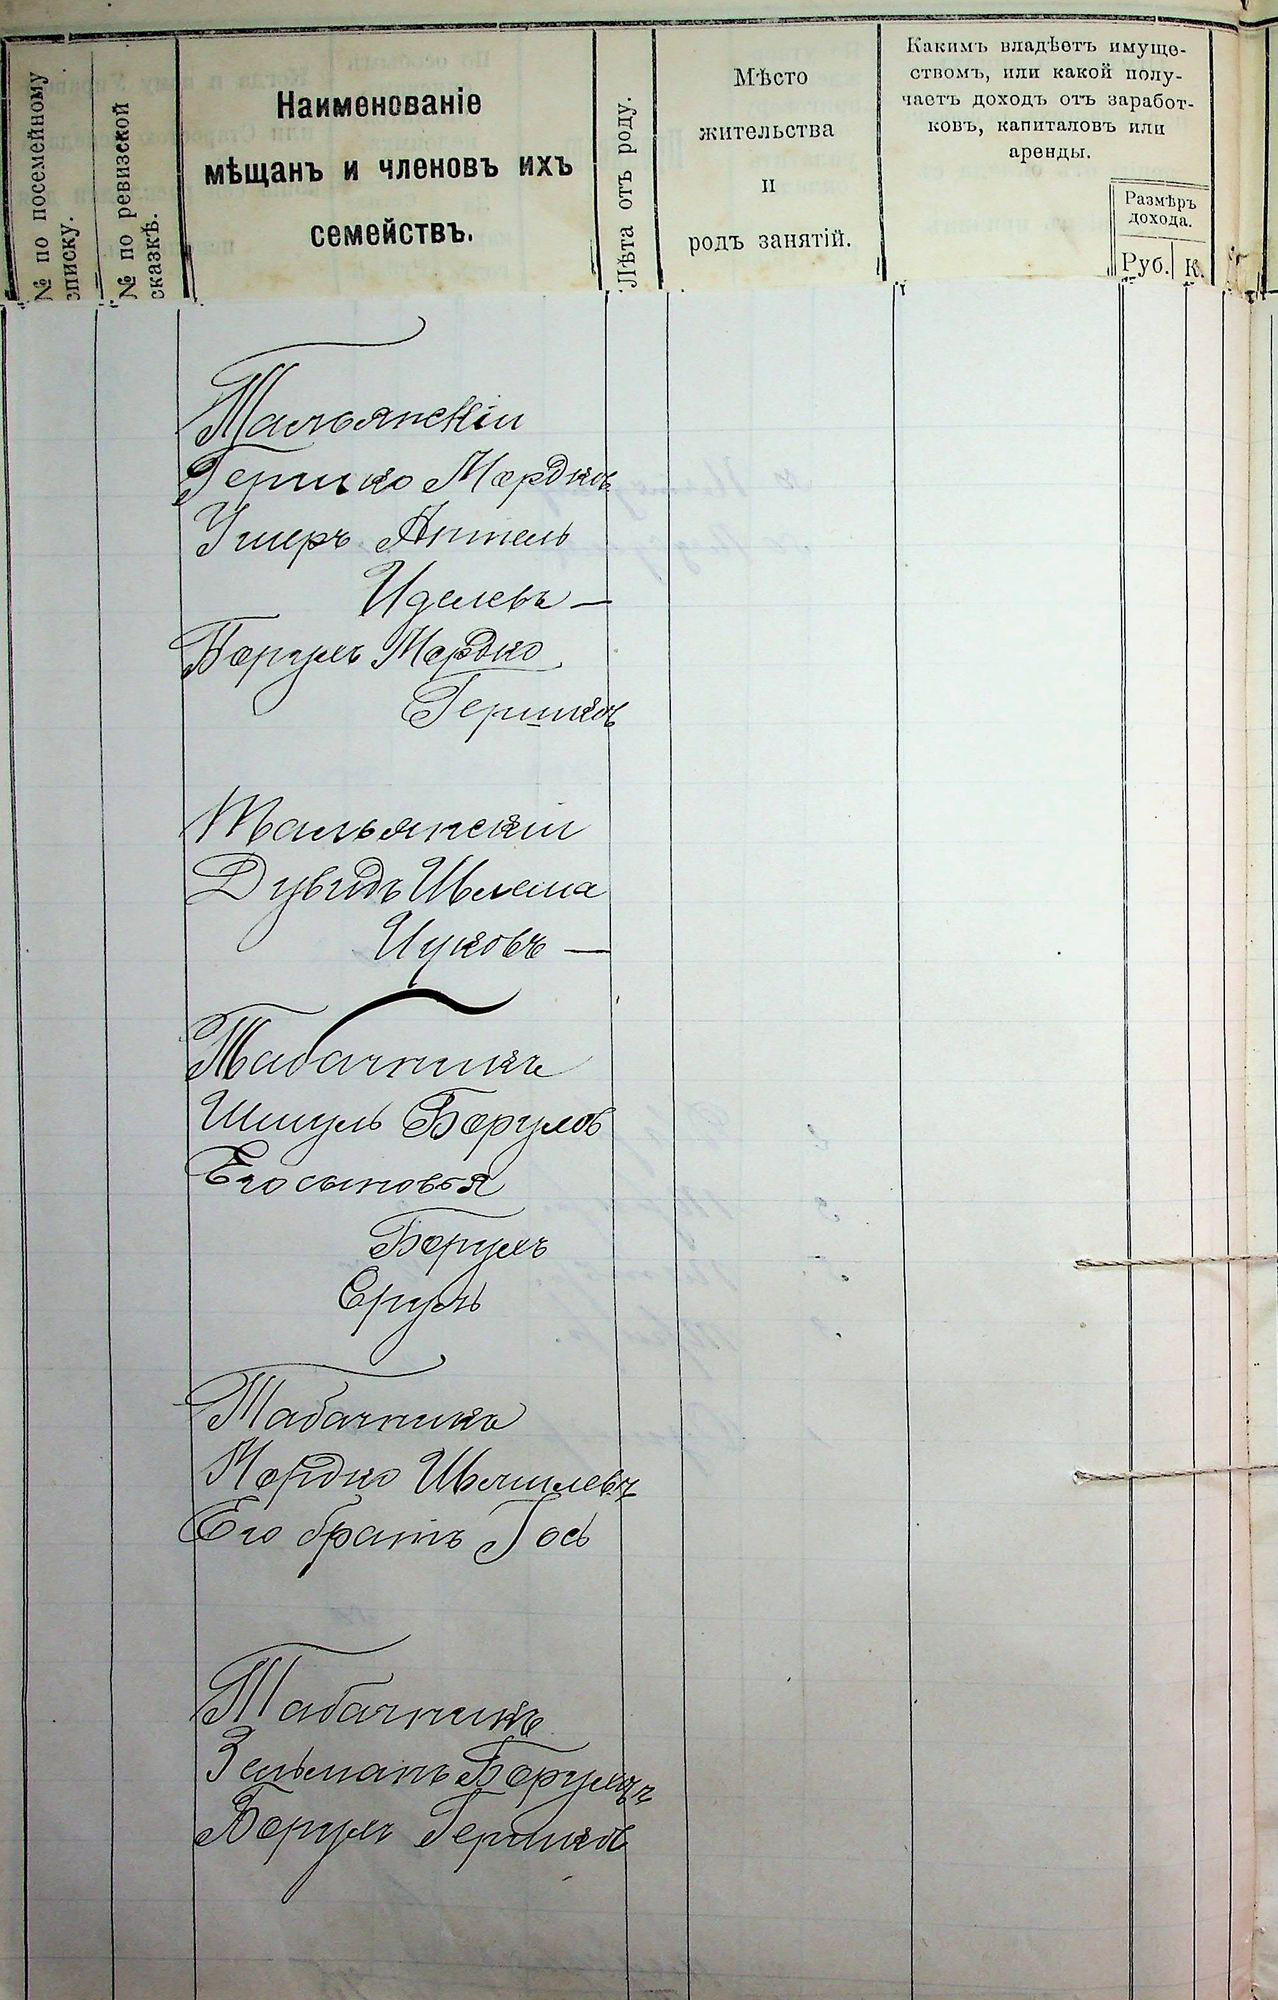 № по посемейному
списку.
№ по ревизской
сказкѣ.
Наименованіе
мѣщанъ и членовъ ихъ
семействъ.
Лѣта отъ роду.
Мѣсто
жительства
и
родъ занятій.
Какимъ владѣетъ имуще-
ствомъ, или какой полу-
чаетъ доходъ отъ заработ-
ковъ, капиталовъ или
аренды.
Размѣръ
дохода.
Руб.
К.
Тальянскій
Гершко Мордков
Ушеръ Антель
Иделевъ —
Борулъ Мордко
Гершков
Тальянскій
Дувидъ
Ицковъ —
Табачникъ
Шмуль Борулов
Его сыновья
Борулъ
Сруль
Табачникъ
Мордко Шмилевъ
Его братъ Гось
Табачникъ
Зельманъ Борулевъ
Борулъ Гершков